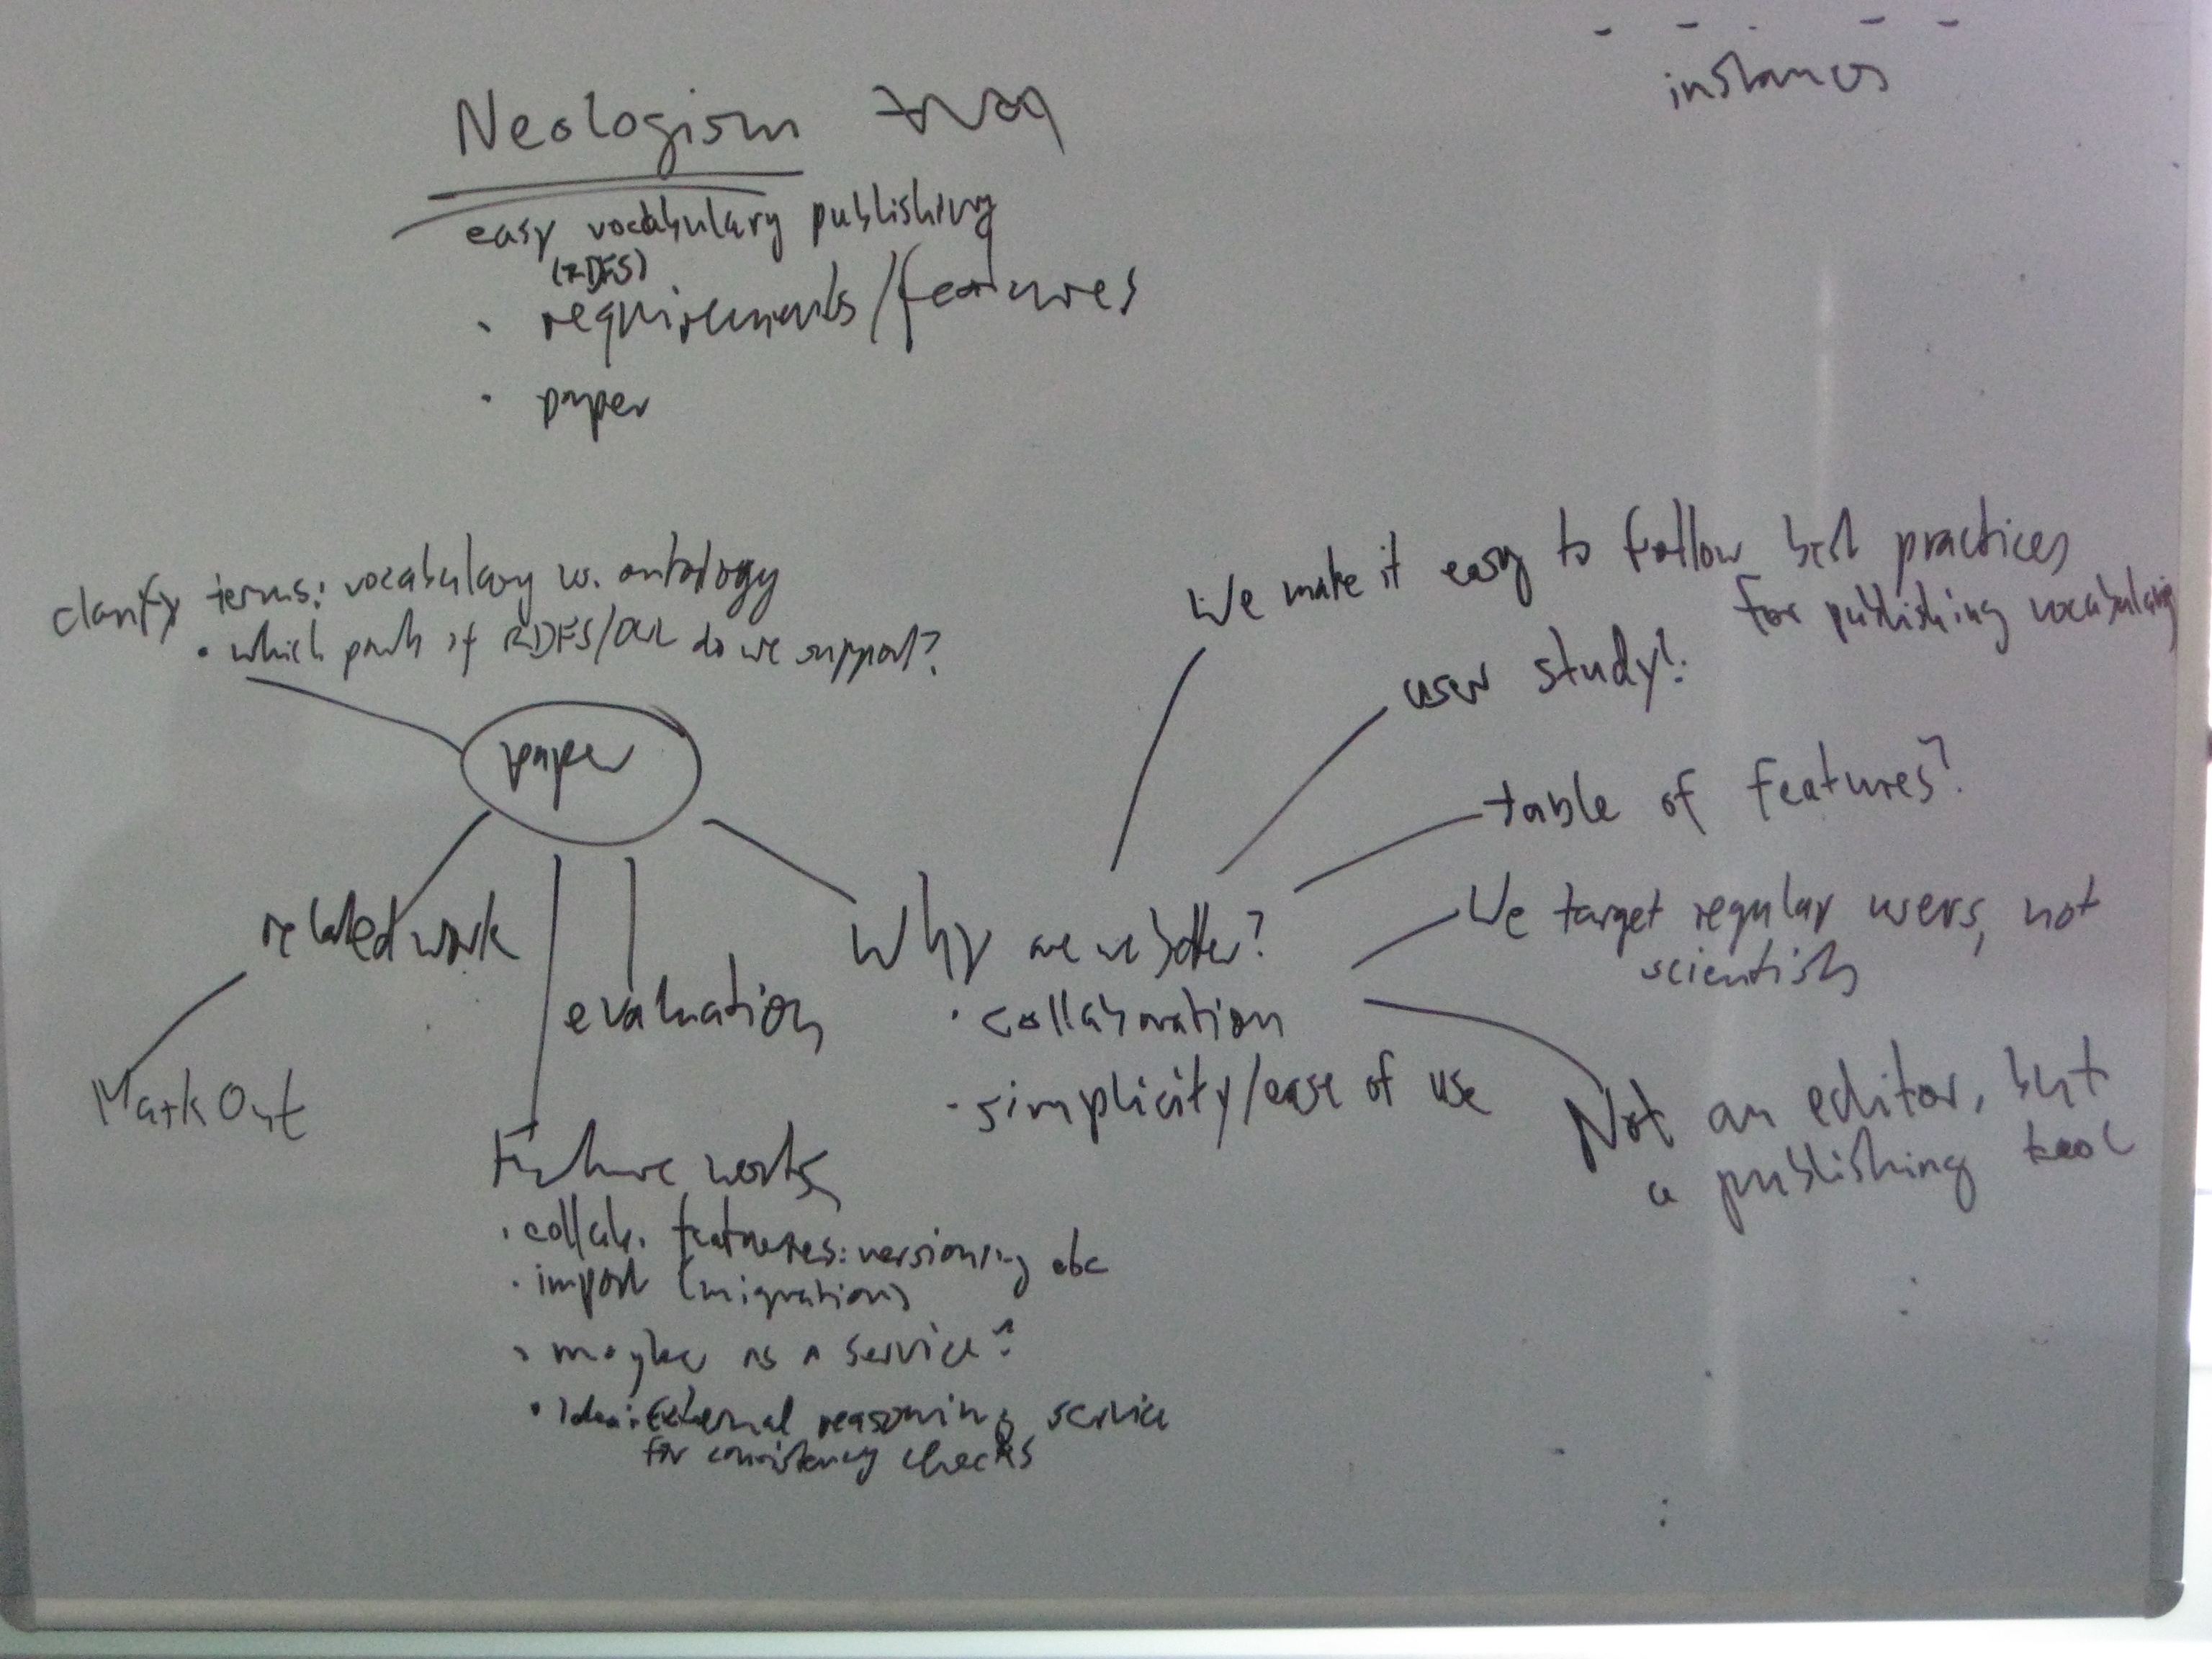 instances
Neologism
easy vocabulary publishing
(RDFS)
· requirements/features
· paper
clarify terms: vocabulary vs. ontology
· which parts of RDFS/OWL do we support?
paper
related work
MarkOut
evaluation
Future work
· collab. features: versioning etc
· import (migration)
· maybe as a service?
· Idea: External reasoning service
for consistency checks
Why are we better?
· collaboration
- simplicity/ease of use
We make it easy to follow best practices
for publishing vocabularies
user study!
table of features?
We target regular users, not
scientists
Not an editor, but
a publishing tool